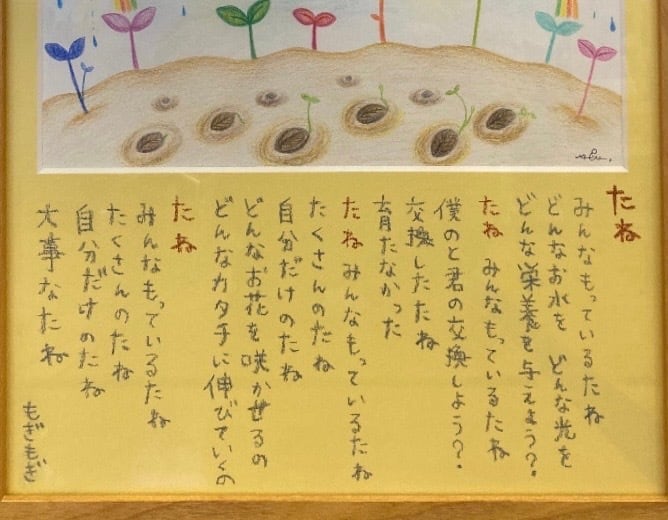 たね
みんなもっているたね
どんなお水を どんな光を
どんな栄養を与えよう?
たね みんなもっているたね
僕のと君の交換しよう?
交換したたね
育たなかった
たね みんなもっているたね
たくさんのたね
自分だけのたね
どんなお花を咲かせるの
どんなカタチに伸びていくの
たね
みんなもっているたね
たくさんのたね
自分だけのたね
大事なたね
もぎもぎ